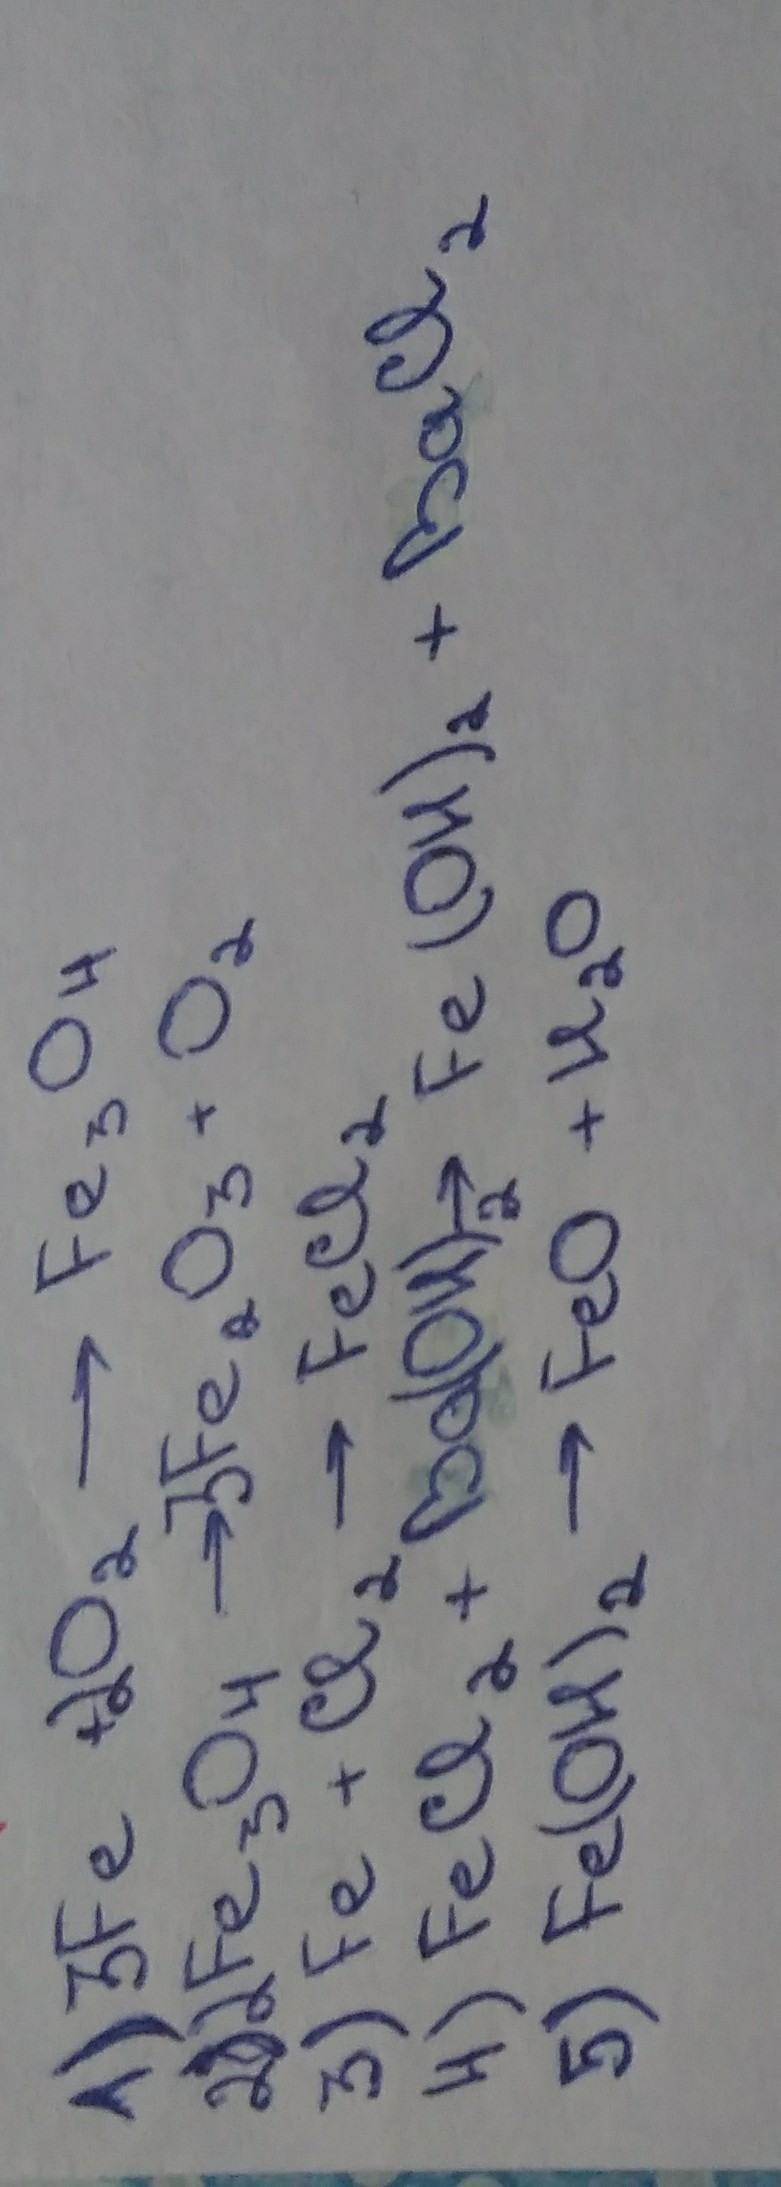 1) 3Fe +2O₂ → Fe₃O₄
2) 2Fe₃O₄ → 3Fe₂O₃ + O₂
3) Fe + Cl₂ → FeCl₂
4) FeCl₂ + Ba(OH)₂ → Fe(OH)₂ + BaCl₂
5) Fe(OH)₂ → FeO + H₂O